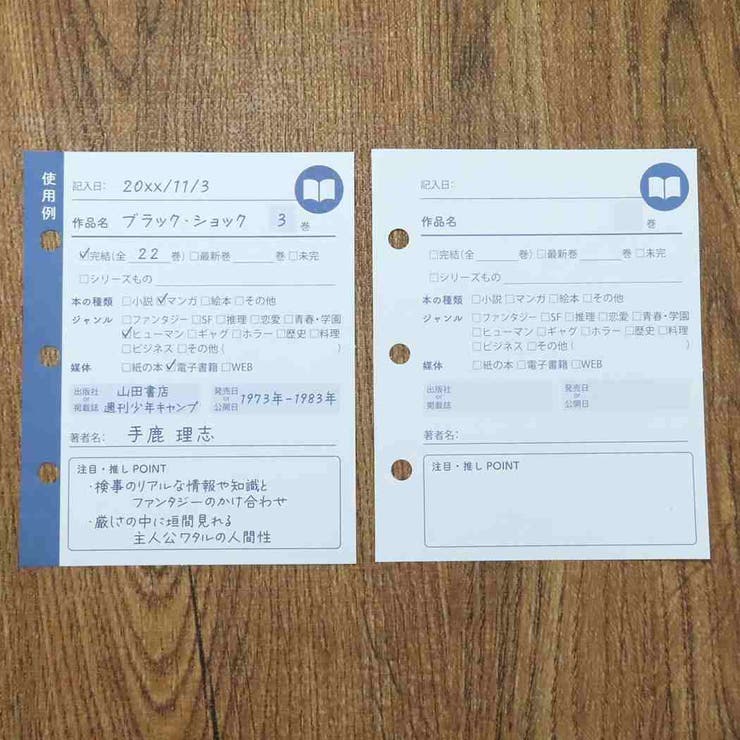 使用例
記入日: 20xx/11/3
作品名 ブラック・ショック 3 巻
☑完結(全 22 巻) □最新巻 巻 □未完
□シリーズもの
本の種類 □小説 ☑マンガ □絵本 □その他
ジャンル □ファンタジー □SF □推理 □恋愛 □青春・学園
☑ヒューマン □ギャグ □ホラー □歴史 □料理
□ビジネス □その他( )
媒体 □紙の本 ☑電子書籍 □WEB
出版社 or 掲載誌 山田書店
週刊少年キャンプ
発売日 or 公開日 1973年-1983年
著者名: 手鹿 理志
注目・推しPOINT
・検事のリアルな情報や知識と
ファンタジーのかけ合わせ
・厳しさの中に垣間見れる
主人公ワタルの人間性
記入日:
作品名 巻
□完結(全 巻) □最新巻 巻 □未完
□シリーズもの
本の種類 □小説 □マンガ □絵本 □その他
ジャンル □ファンタジー □SF □推理 □恋愛 □青春・学園
□ヒューマン □ギャグ □ホラー □歴史 □料理
□ビジネス □その他( )
媒体 □紙の本 □電子書籍 □WEB
出版社 or 掲載誌
発売日 or 公開日
著者名:
注目・推しPOINT